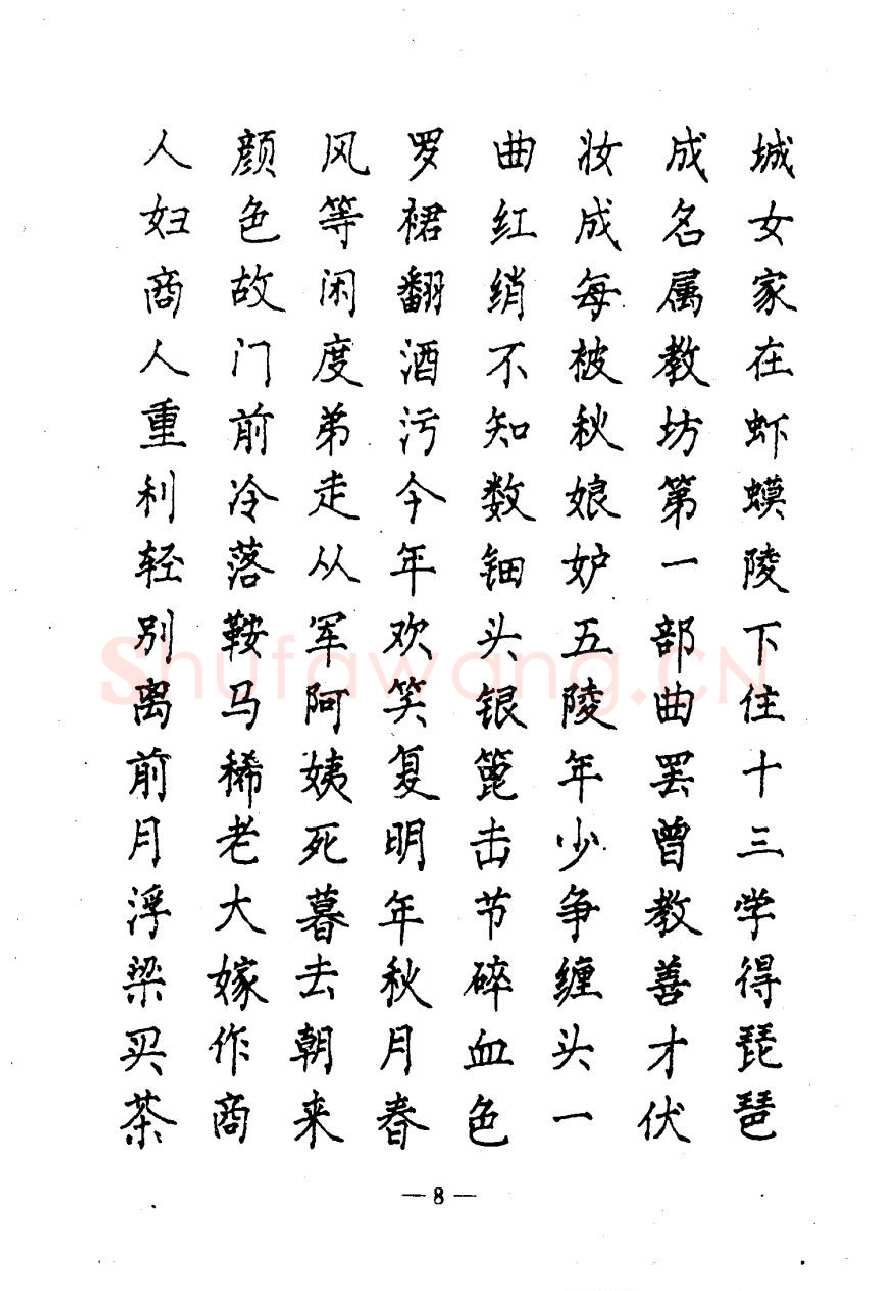 城女家在虾蟆陵下住十三学得琵琶
成名属教坊第一部曲罢曾教善才伏
妆成每被秋娘妒五陵年少争缠头一
曲红绡不知数钿头银篦击节碎血色
罗裙翻酒污今年欢笑复明年秋月春
风等闲度弟走从军阿姨死暮去朝来
颜色故门前冷落鞍马稀老大嫁作商
人妇商人重利轻别离前月浮梁买茶
—8—
Shufawang.CN